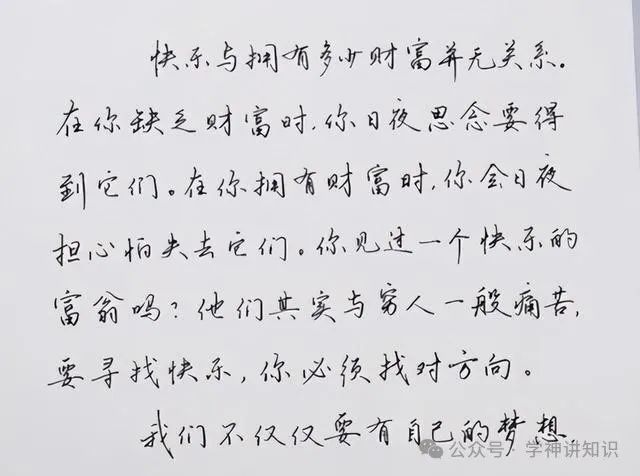 快乐与拥有多少财富并无关系。
在你缺乏财富时,你日夜思念要得
到它们。在你拥有财富时,你会日夜
担心怕失去它们。你见过一个快乐的
富翁吗?他们其实与穷人一般痛苦,
要寻找快乐,你必须找对方向。
我们不仅仅要有自己的梦想,
公众号·学神讲知识